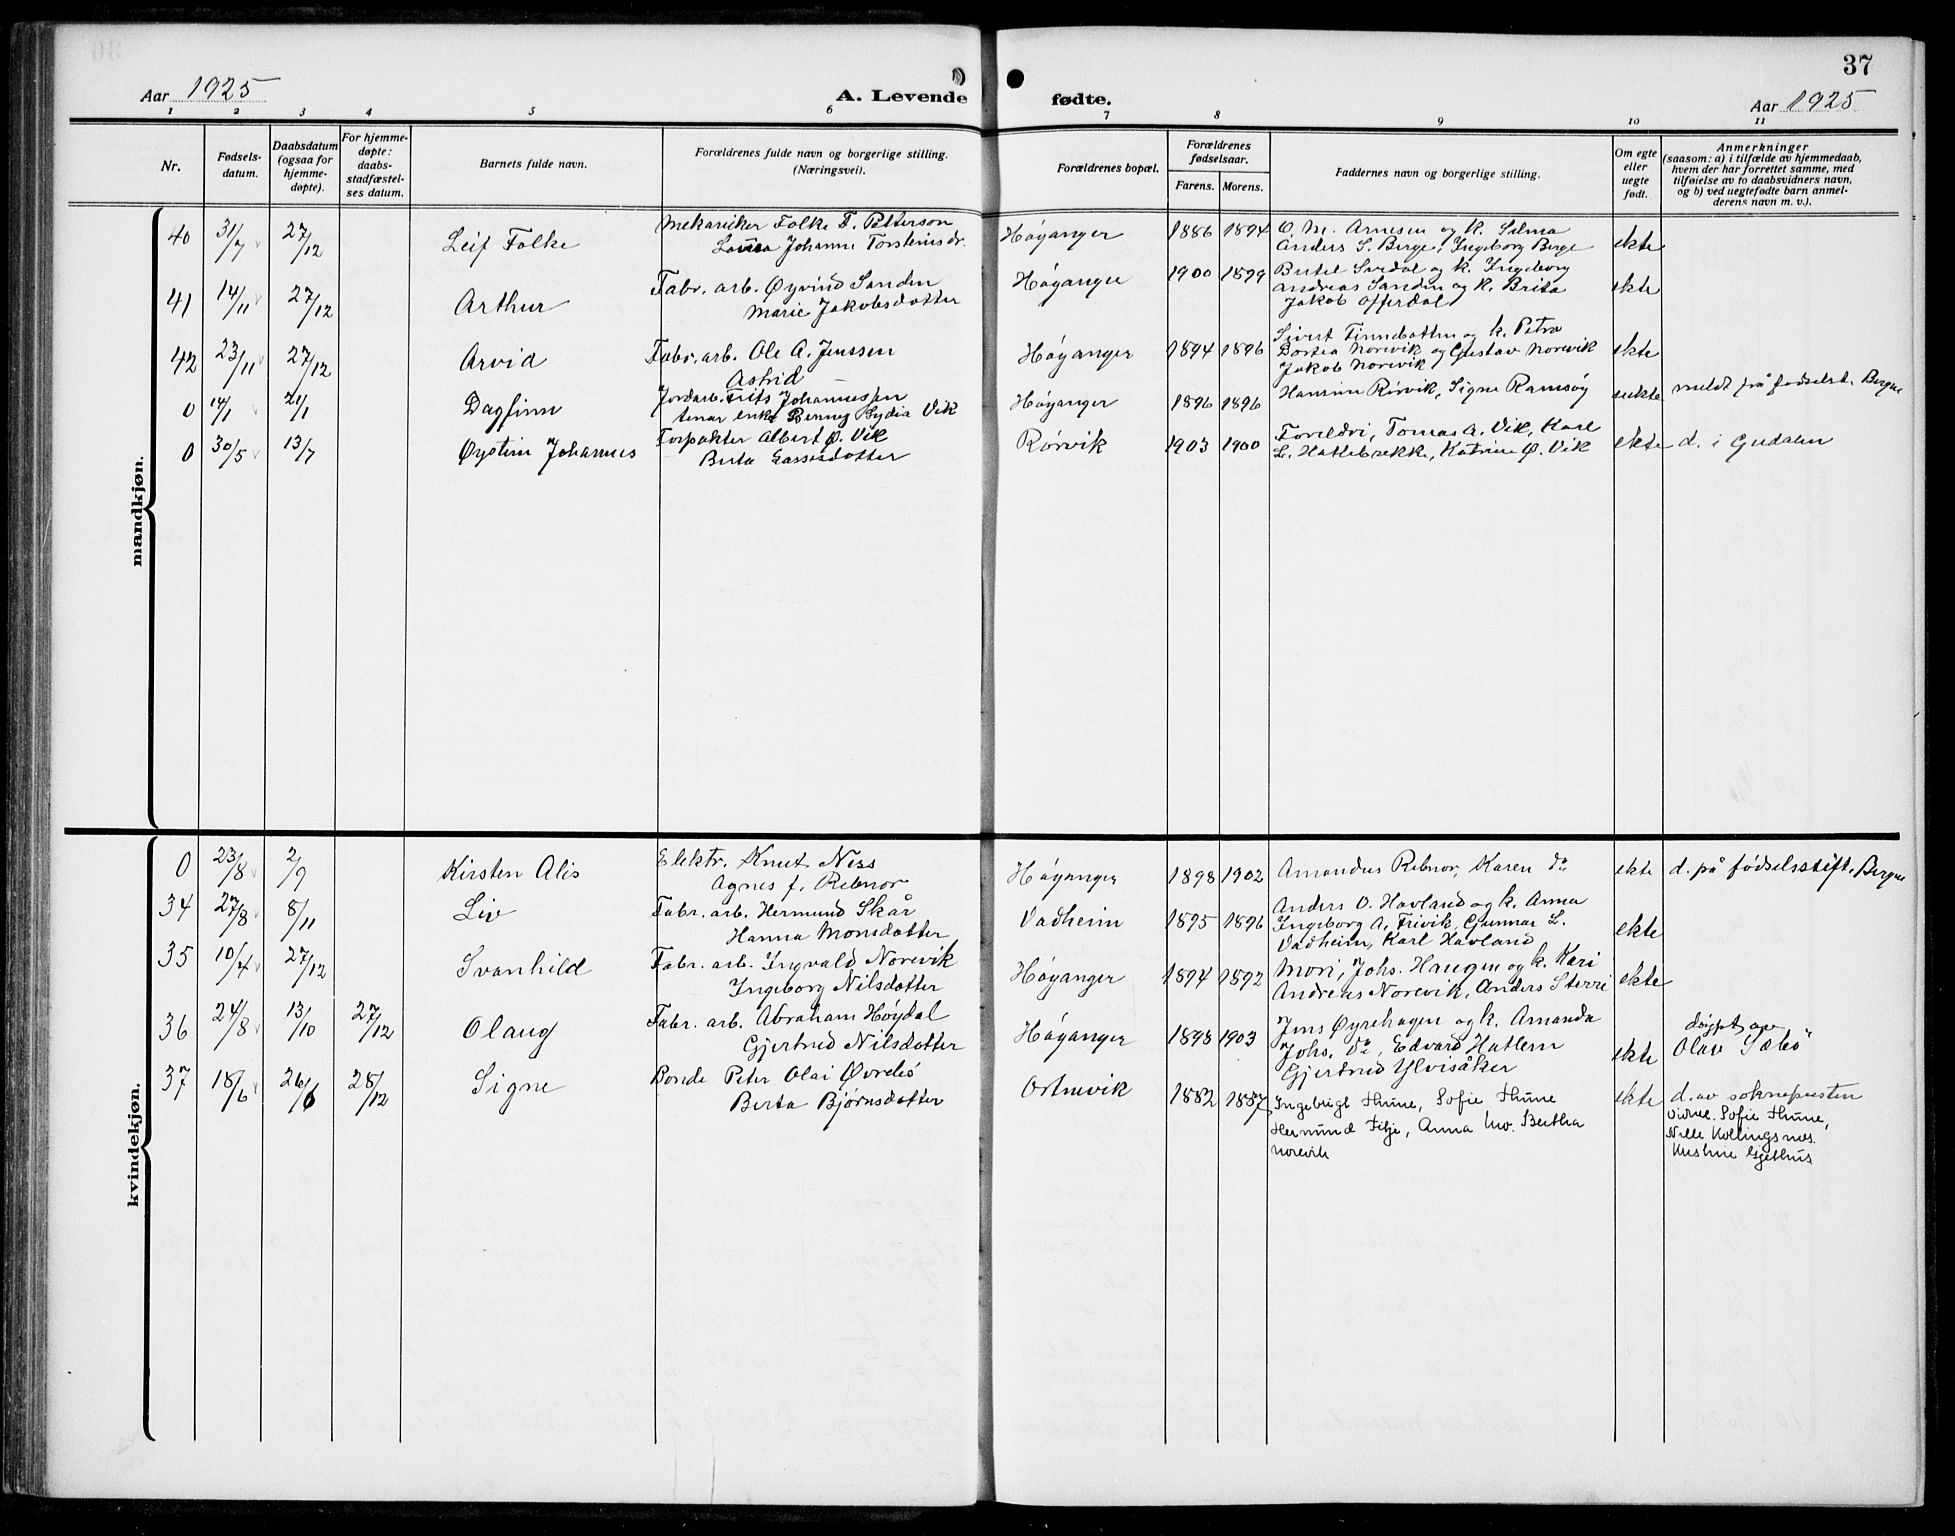 37
Aar 1925
A. Levende fødte.
Aar 1925
1 2 3 4 5 6 7 8 9 10 11
Nr.
Fødsels-
datum.
Daabsdatum
(ogsaa for
hjemme-
døpte).
For hjemme-
døpte:
daabs-
stadfæstel-
ses datum.
Barnets fulde navn.
Forældrenes fulde navn og borgerlige stilling.
(Næringsvei).
Forældrenes bopæl.
Forældrenes
fødselsaar.
Farens. Morens.
Faddernes navn og borgerlige stilling.
Om egte
eller
uegte
født.
Anmerkninger
(saasom: a) i tilfælde av hjemmedaab,
hvem der har forrettet samme, med
tilføielse av to daabsvidners navn,
og b) ved uegtefødte barn anmel-
derens navn m. v.).
mandkjøn.
40 31/7 27/12 Leif Folke
Mekaniker Folke T. Petterson
Johanne Torsteinsdr.
Høyanger 1886 1894
O. M. Arnesen og k. Selma
Anders S. Berge, Ingeborg Berge
ekte
41 14/11 27/12 Arthur
Fabr. arb. Øyvind Sanden
Marie Jakobsdotter
Høyanger 1900 1899
Bertel Sørdal og k. Ingeborg
Andreas Sanden og k. Brita
Jakob Offerdal
ekte
42 23/11 27/12 Arvid
Fabr. arb. Ole A. Jenssen
Astrid
Høyanger 1894 1896
Sivert Finnebotten og k. Petra
Dortea Norevik og Gustav Norevik
Jakob Norevik
ekte
0 14/1 21/1 Dagfinn
Jordarb. Frits Johannessen
enke Benny Lydia Vik
Høyanger 1896 1896
Hansine Rørvik, Signe Ramsøy
uekte
meldt på fødselst. Bergen
0 30/5 13/7 Øystein Johannes
Forpakter Albert Ø. Vik
Berta Lassesdotter
Rørvik 1903 1900
Foreldri, Tomas A. Vik, Karl
L. Hattebrekke, Katrine Ø. Vik
ekte
d. i Gudalen
kvindekjøn.
0 23/8 2/9 Kirsten Alis
Elektr. Knut Ness
Agnes f. Rebnor
Høyanger 1898 1902
Amandus Rebnor, Karen do
ekte
d. på fødselsstift. Bergen
34 27/8 8/11 Liv
Fabr. arb. Hermund Skår
Hanna Monsdotter
Vadheim 1895 1896
Anders O. Havland og k. Anna
Ingeborg A. Trivik, Gunnar L.
Vadheim, Karl Havland
ekte
35 10/4 27/12 Svanhild
Fabr. arb. Ingvald Norevik
Ingeborg Nilsdotter
Høyanger 1894 1892
Mori, Johs. Haugen og k. Kari
Andreas Norevik, Anders Sterri
ekte
36 24/8 13/10 27/12 Olaug
Fabr. arb. Abraham Høydal
Gjertrud Nilsdotter
Høyanger 1898 1903
Jens Øyrehagen og k. Amanda
Johs. do, Edvard Hatlem
Gjertrud Ylvisåker
ekte
døypt av
Olav Sæbø
37 18/6 26/6 28/12 Signe
Bonde Peter Olai Øvrebø
Berta Bjørnsdotter
Ortnevik 1882 1887
Ingebrigt Thune, Sofie Thune
Hermund Filje, Anna Bertha
Norevik
ekte
d. av soknepresten
vidne. Sofie Thune,
Nille Kollingsnes.